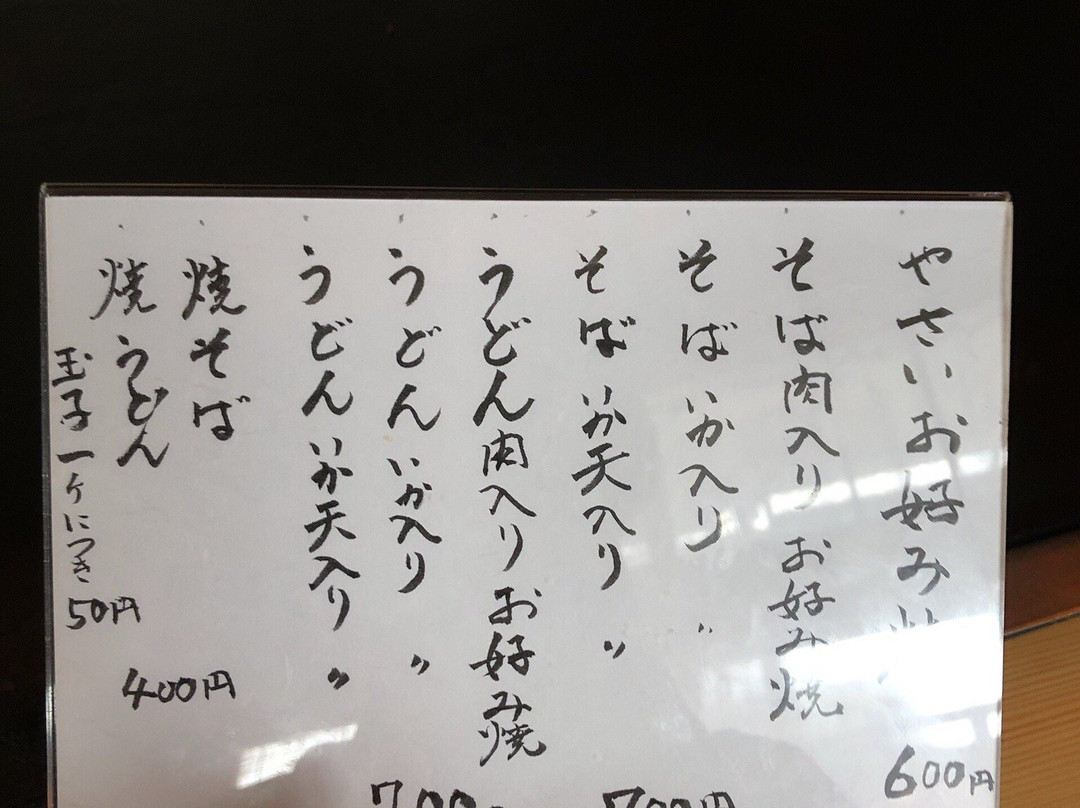 やさいお好み焼 600円
そば肉入りお好み焼
そばいか入り 〃
そばいか天入り 〃
700円
うどん肉入りお好み焼
うどんいか入り 〃
うどんいか天入り 〃
700
焼そば
焼うどん
400円
玉子一ケにつき50円